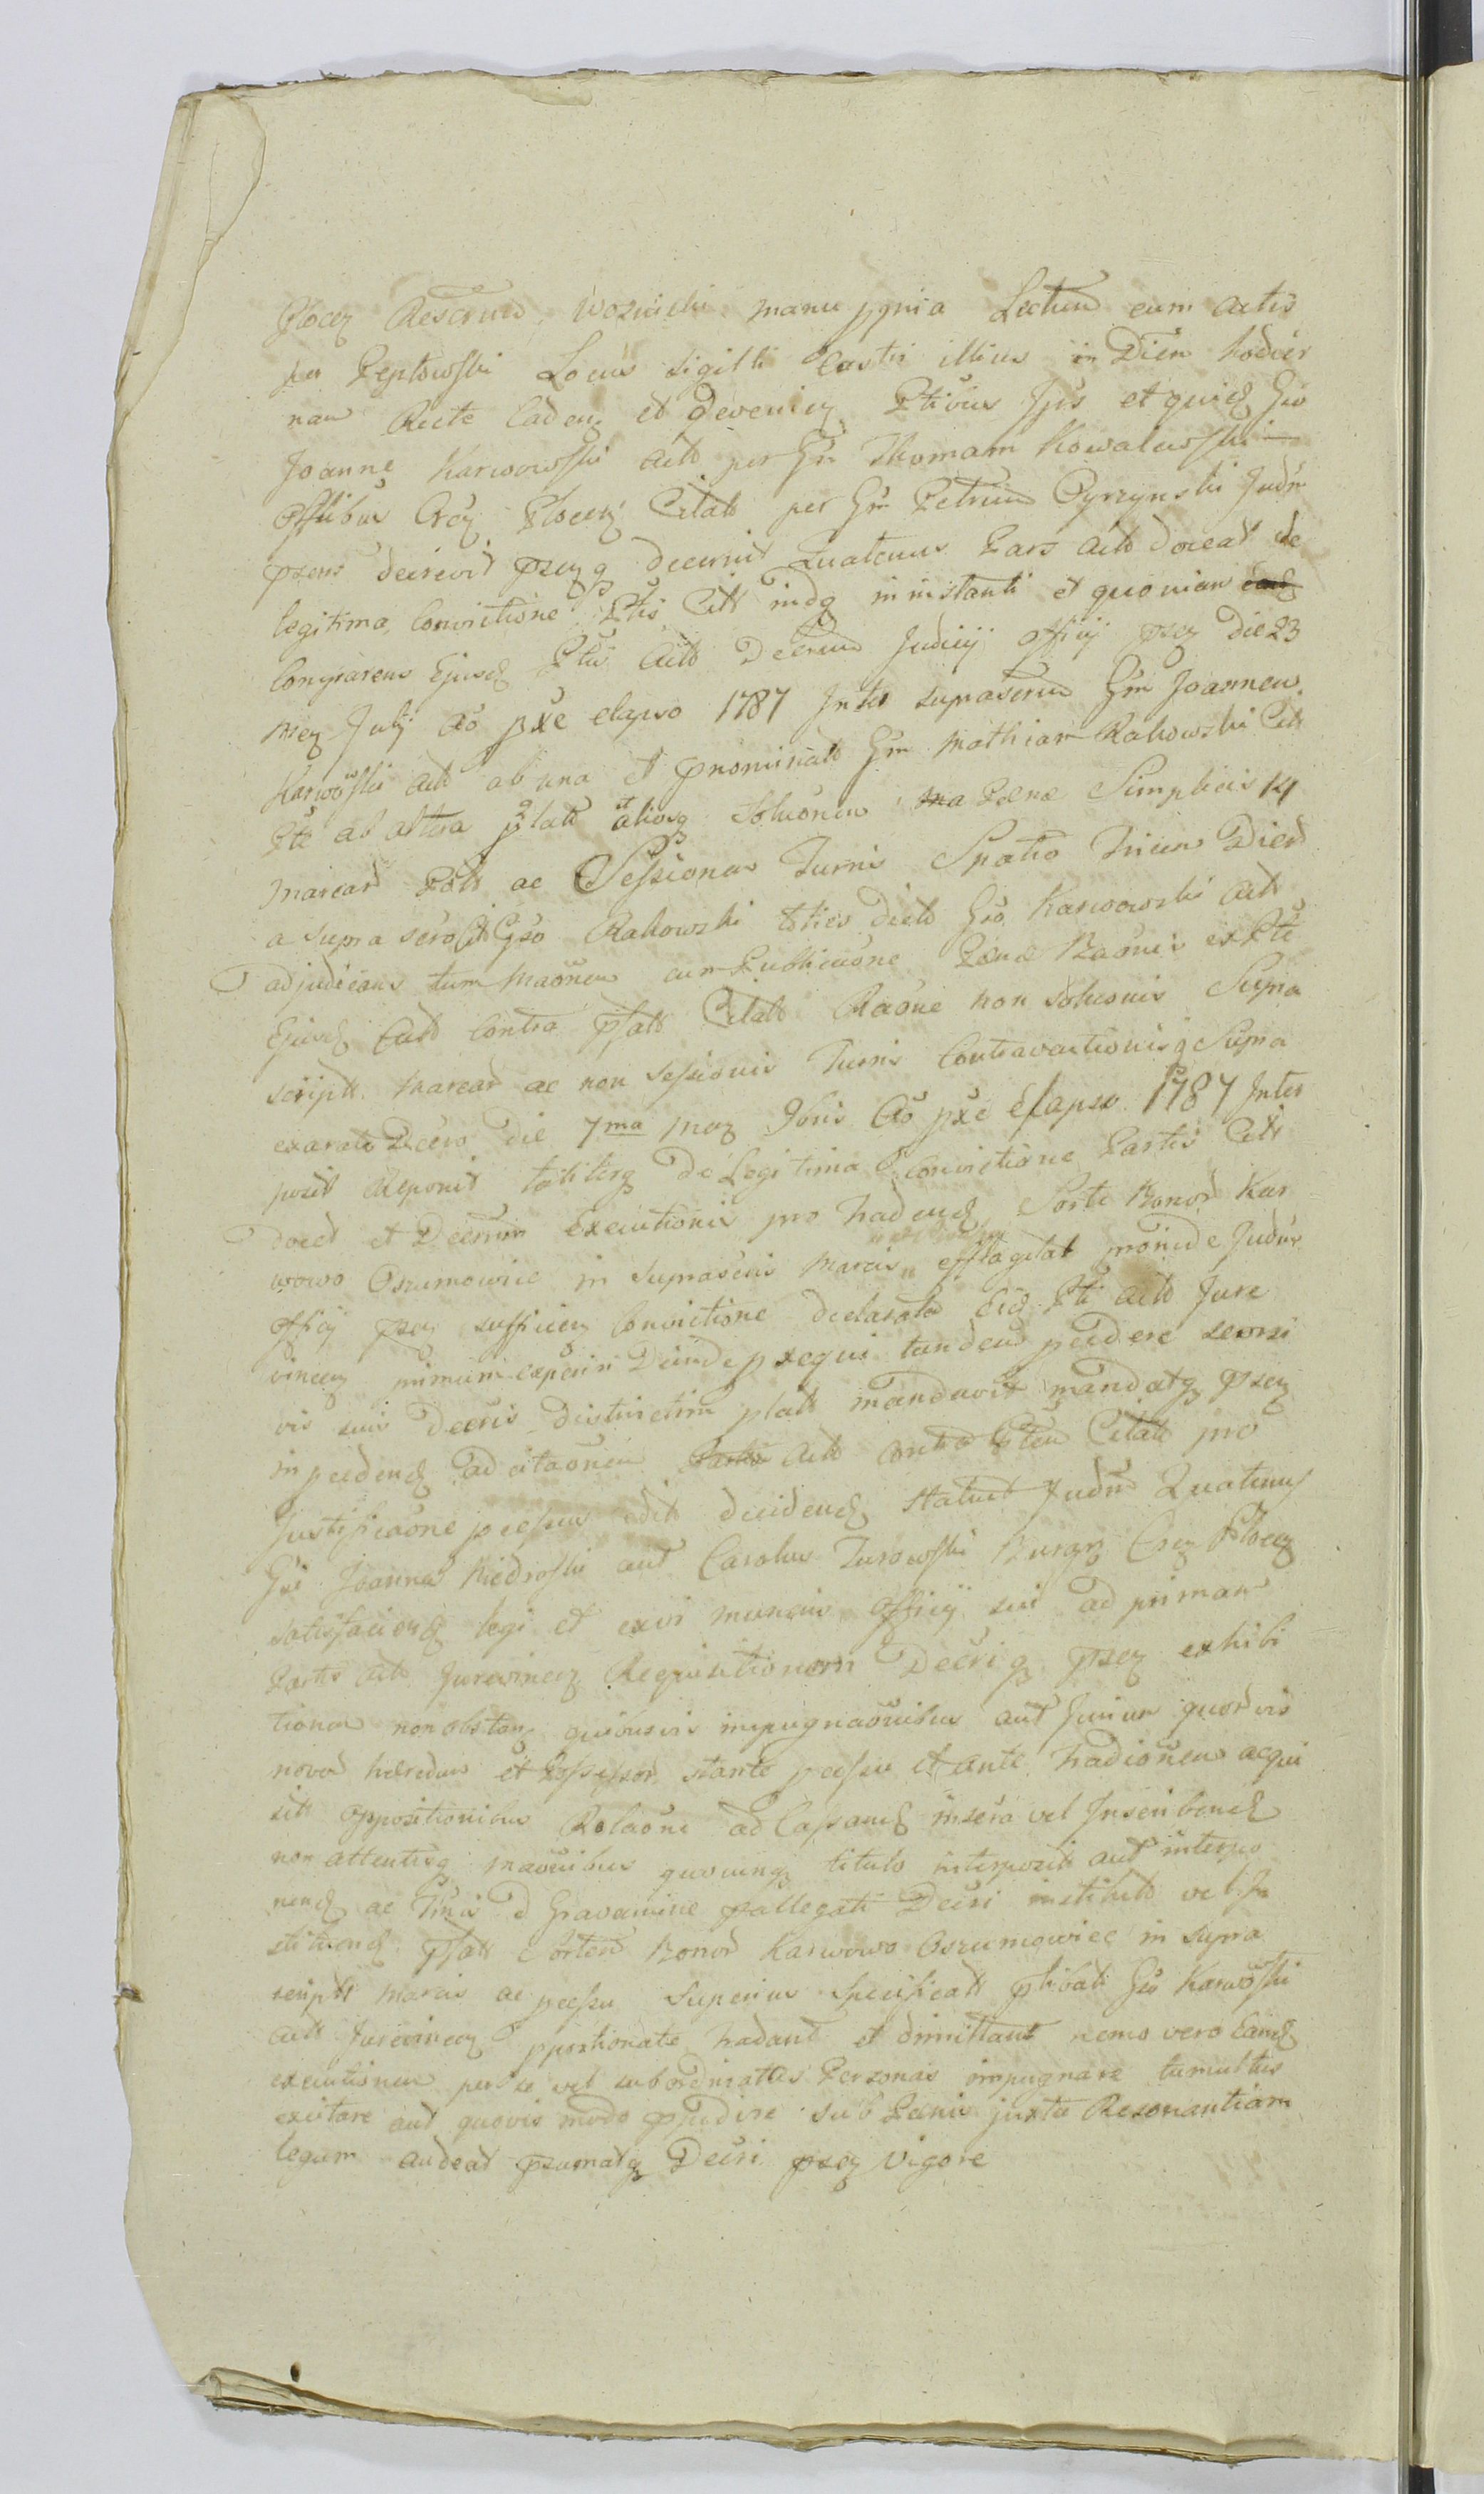 Plocen Rescrive Woznicki manu ppria Lectum cum actis
per Peptowski Locus sigilli Castri illius in Diem hodier
nam Recte Caden et Devenien Ptibus Ipis et quid Gso
Joanne Karwowski Act per Gm Thomam Kowalewski
Offibus Cren Plocen Citat per Gm Petrum Pyrzynski Judm
psens decrevit psenq decernit Quatenus Pars Act doceat de
legitima Convictione Ptis Citt indq in instanti et quoniam
Comparens Ejusd Ptis Act Decrum Judicij Officij psen die 23
men Julij Ao pxe elapso 1787 Inter suprascrum Gm Joannem
Karwowski Act ab una et pnominat Gm Mathiam Rakowski Citt
Pte ab altera plat aliosq Soluonem Paenae Simplicis 14
Marcar Pott ac Sessionem Turris Spatio Trium Dier
a supra scro Citt Gso Rakowski toties dicto Gso Karwowski Act
adjudicans tum Maonem cum Publicaone Paenae Baonis ex Pte
Ejusd Citt Contra psatt Citatt Raone non Soluonis Supra
scriptt Marcar ac non Sessionis Turris Contraventionisq Supra
exarati Decro die 7ma Men 9bris Ao pxe elapso 1787 Inter
posit Reponit taliterq de Legitima Convictione Partis Citt
docet et Decrum Executionis pro Tradend Sorte Bonor Kar
wowo Oszumowice in suprascris Marcis efflagitat proinde Judm
Officij psen sufficien Convictione declarata eid Pti Act Jure
vincen primum experiri Deinde psequi tandem pcedere seorsi
vis suis Decris Districtim platt mandavit mandatq psen
in pcedend ad citaonem Act contra Ptem Citatt pro
justificaone pcessus edit decidend Statuit Judm Quatenus
Gsi Joannes Niedroski aut Carolus Turowski Burgr Cren Plocen
satisfaciend legi et exivi muneris Officij sui ad primam
Partis Act Jurevincen Requisitionem Decriq psen exhibi
tionem non obstan quibusvis impugnaonibus aut Jurium quorvis
novor haeredum et Possessor stante pcessu et ante Tradionem acqui
sitt oppositionibus Relaone ad Cassand inscra vel Inscribend
non attentisq maonibus quocunq titulo interposit aut interpo
nend ac Tmis D Gravamine pallegati Decri institut vel In
stituend psatt Sortem Bonor Karwowo Oszumowice in supra
scriptt Marcis ac pcessu Superius specificatt plibati Gso Karwowski
Act Jurevincen pportionate Tradant et dimittant nemo vero Eand
executionem per se vel subordinatas Personas impugnare tumultus
excitare aut quovis modo ppedire sub Paenis juxta Resonantiam
legum audeat psumatq Decri psen vigore